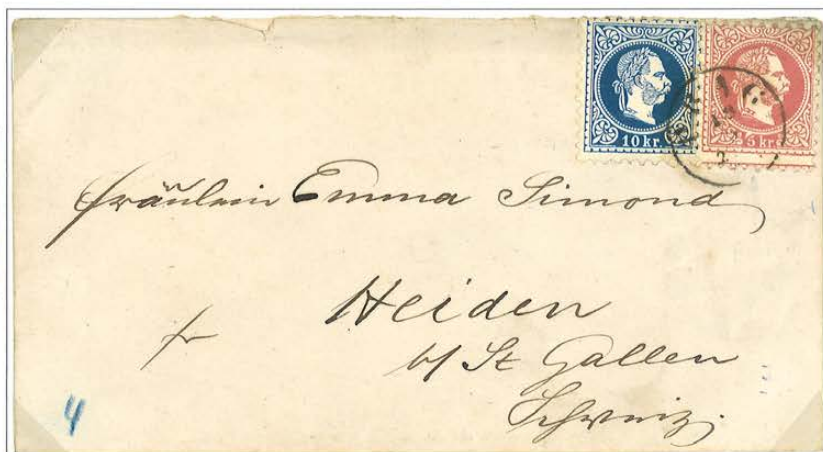 10 kr.
5 kr.
Fräulein Emma Simond
Heiden
fr
b/ St Gallen
Schweiz.
4